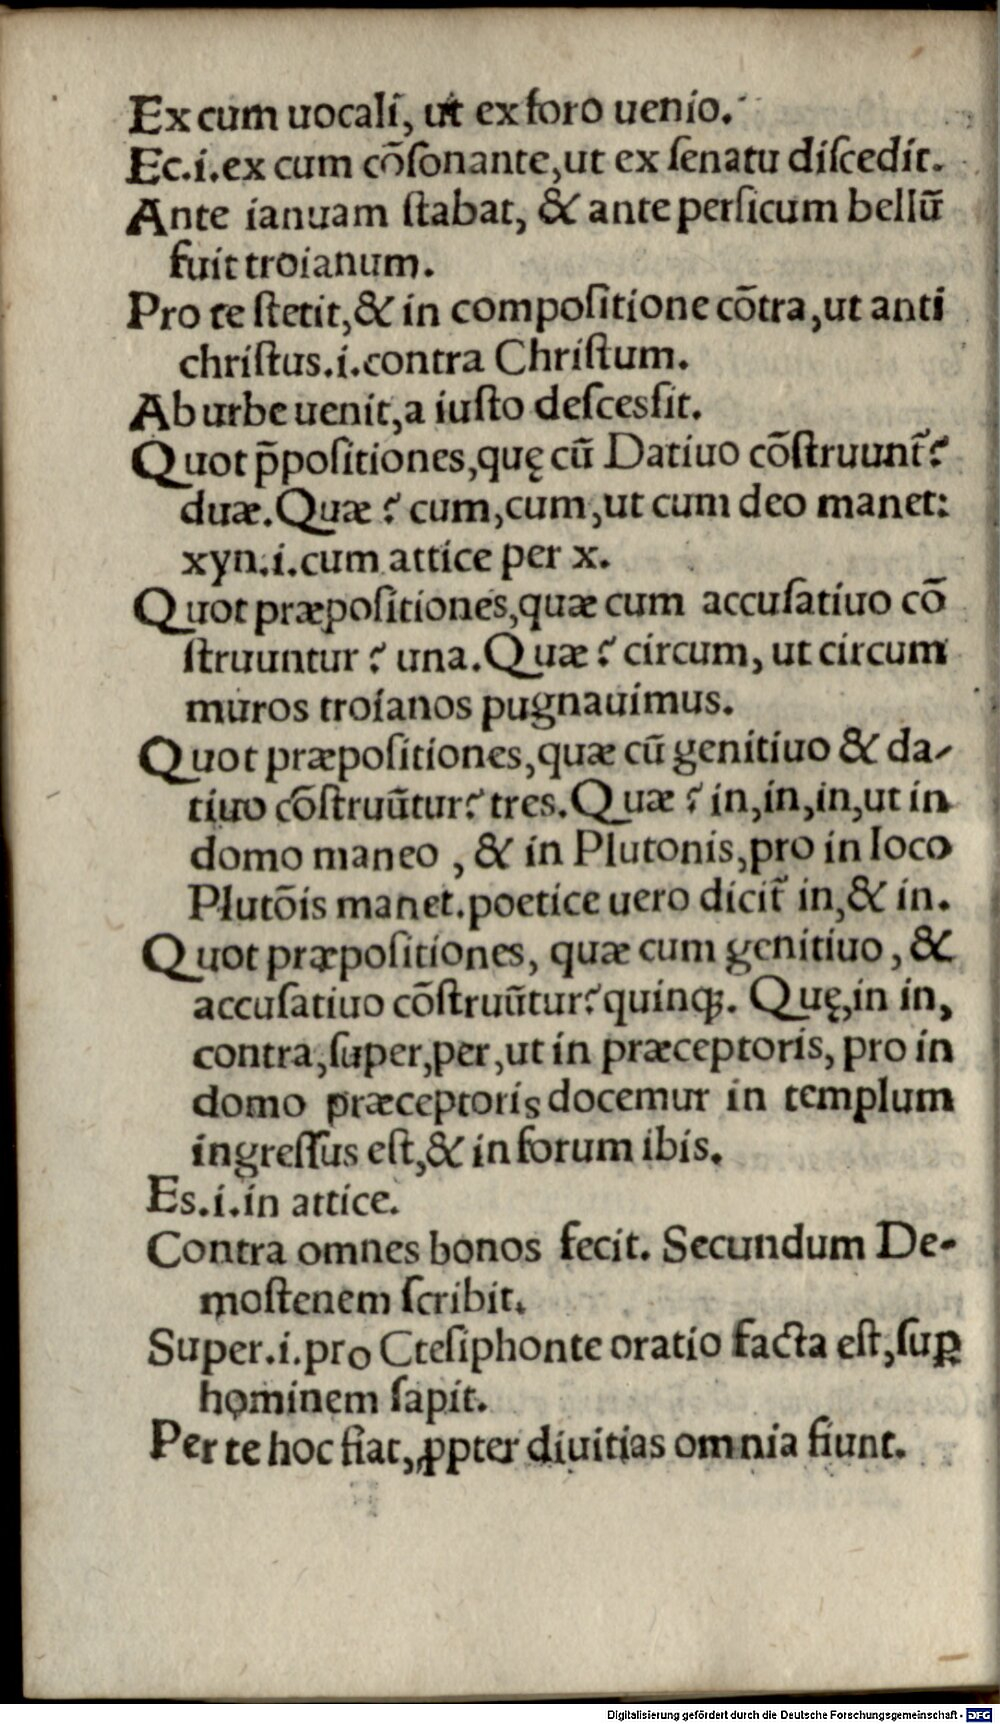 Ex cum uocali, ut ex foro uenio.
Ec.i.ex cum cōſonante,ut ex ſenatu diſcedit.
Ante ianuam ſtabat, & ante perſicum bellū
fuit troianum.
Pro te ſtetit,& in compoſitione cōtra,ut anti
chriſtus.i.contra Chriſtum.
Ab urbe uenit,a iuſto deſceſſit.
Quot p̄poſitiones,quę cū Datiuo cōſtruunt᷑?
duæ.Quæ? cum,cum,ut cum deo manet:
xyn.i.cum attice per x.
Quot præpoſitiones,quæ cum accuſatiuo cō
ſtruuntur? una.Quæ? circum, ut circum
muros troianos pugnauimus.
Quot præpoſitiones,quæ cū genitiuo & da⸗
tiuo cōſtruūtur? tres.Quæ? in,in,in,ut in
domo maneo , & in Plutonis,pro in loco
Plutōis manet.poetice uero dicit᷑ in,& in.
Quot præpoſitiones, quæ cum genitiuo, &
accuſatiuo cōſtruūtur?quinqꝫ. Quę,in in,
contra,ſuper,per,ut in præceptoris, pro in
domo præceptoris docemur in templum
ingreſſus eſt,& in forum ibis.
Es.i.in attice.
Contra omnes bonos fecit. Secundum De-
moſtenem ſcribit.
Super.i.pro Cteſiphonte oratio facta eſt,ſuꝑ
hominem ſapit.
Per te hoc fiat,ꝓpter diuitias omnia fiunt.
Digitalisierung gefördert durch die Deutsche Forschungsgemeinschaft - DFG